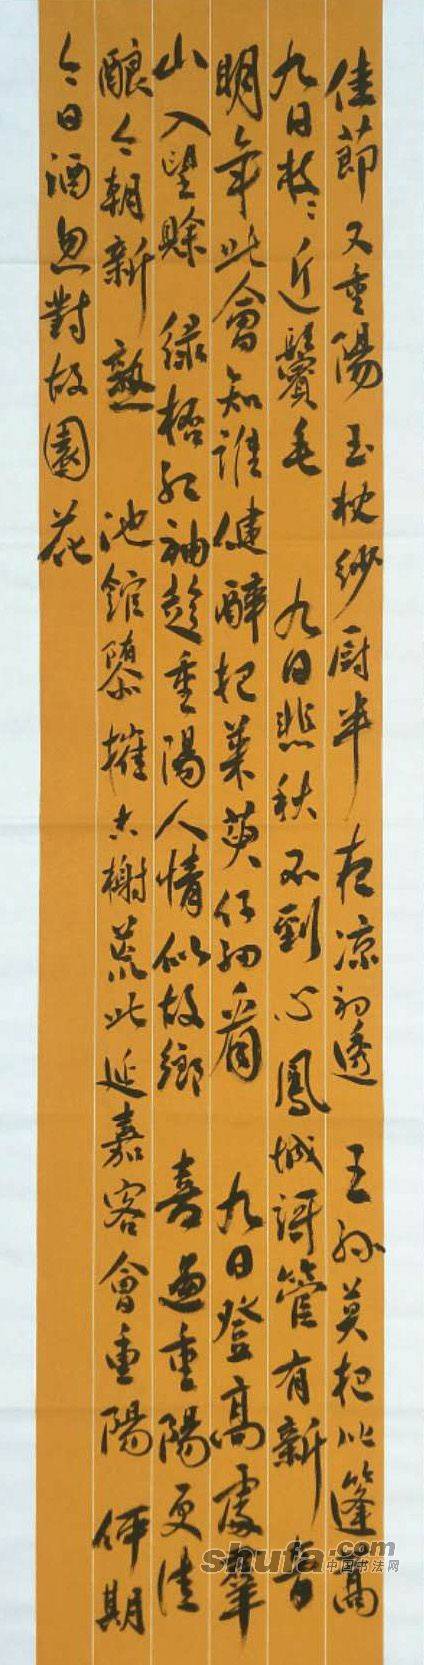 佳節又重陽玉枕紗厨半夜凉初透　王孫莫把比篷蒿
九日枝〻近鬢毛　九日悲秋不到心鳳城謌管有新音
明年此會知誰健醉把茱萸仔細看　九日登高處羣
山入望賖　緑桮紅袖趁重陽人情似故鄉　喜遇重陽更佳
釀今朝新熟　池館隳摧古榭荒此延嘉客會重陽　何期
今日酒忽對故園花
shufa.com
中国书法网